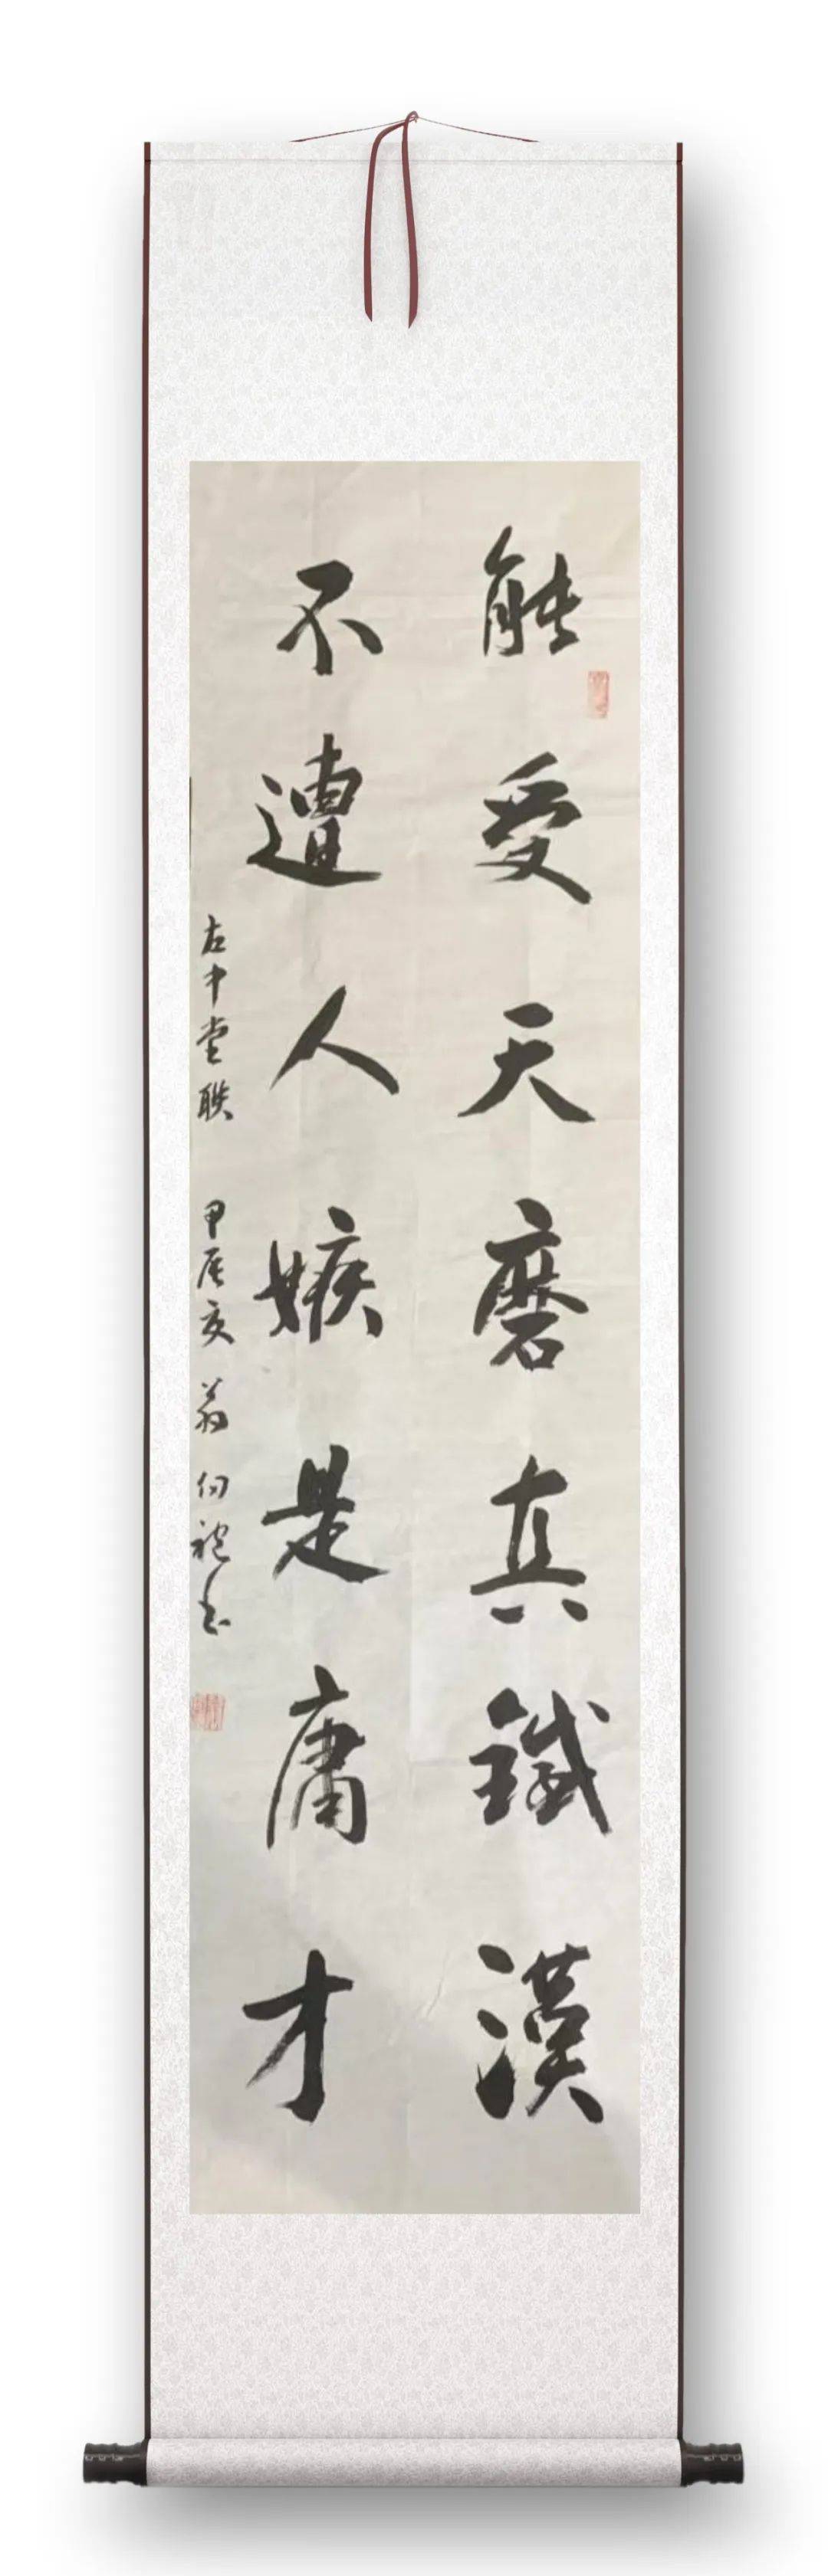 能受天磨真鐵漢
不遭人嫉是庸才
左中堂联 甲辰亥 翁 书